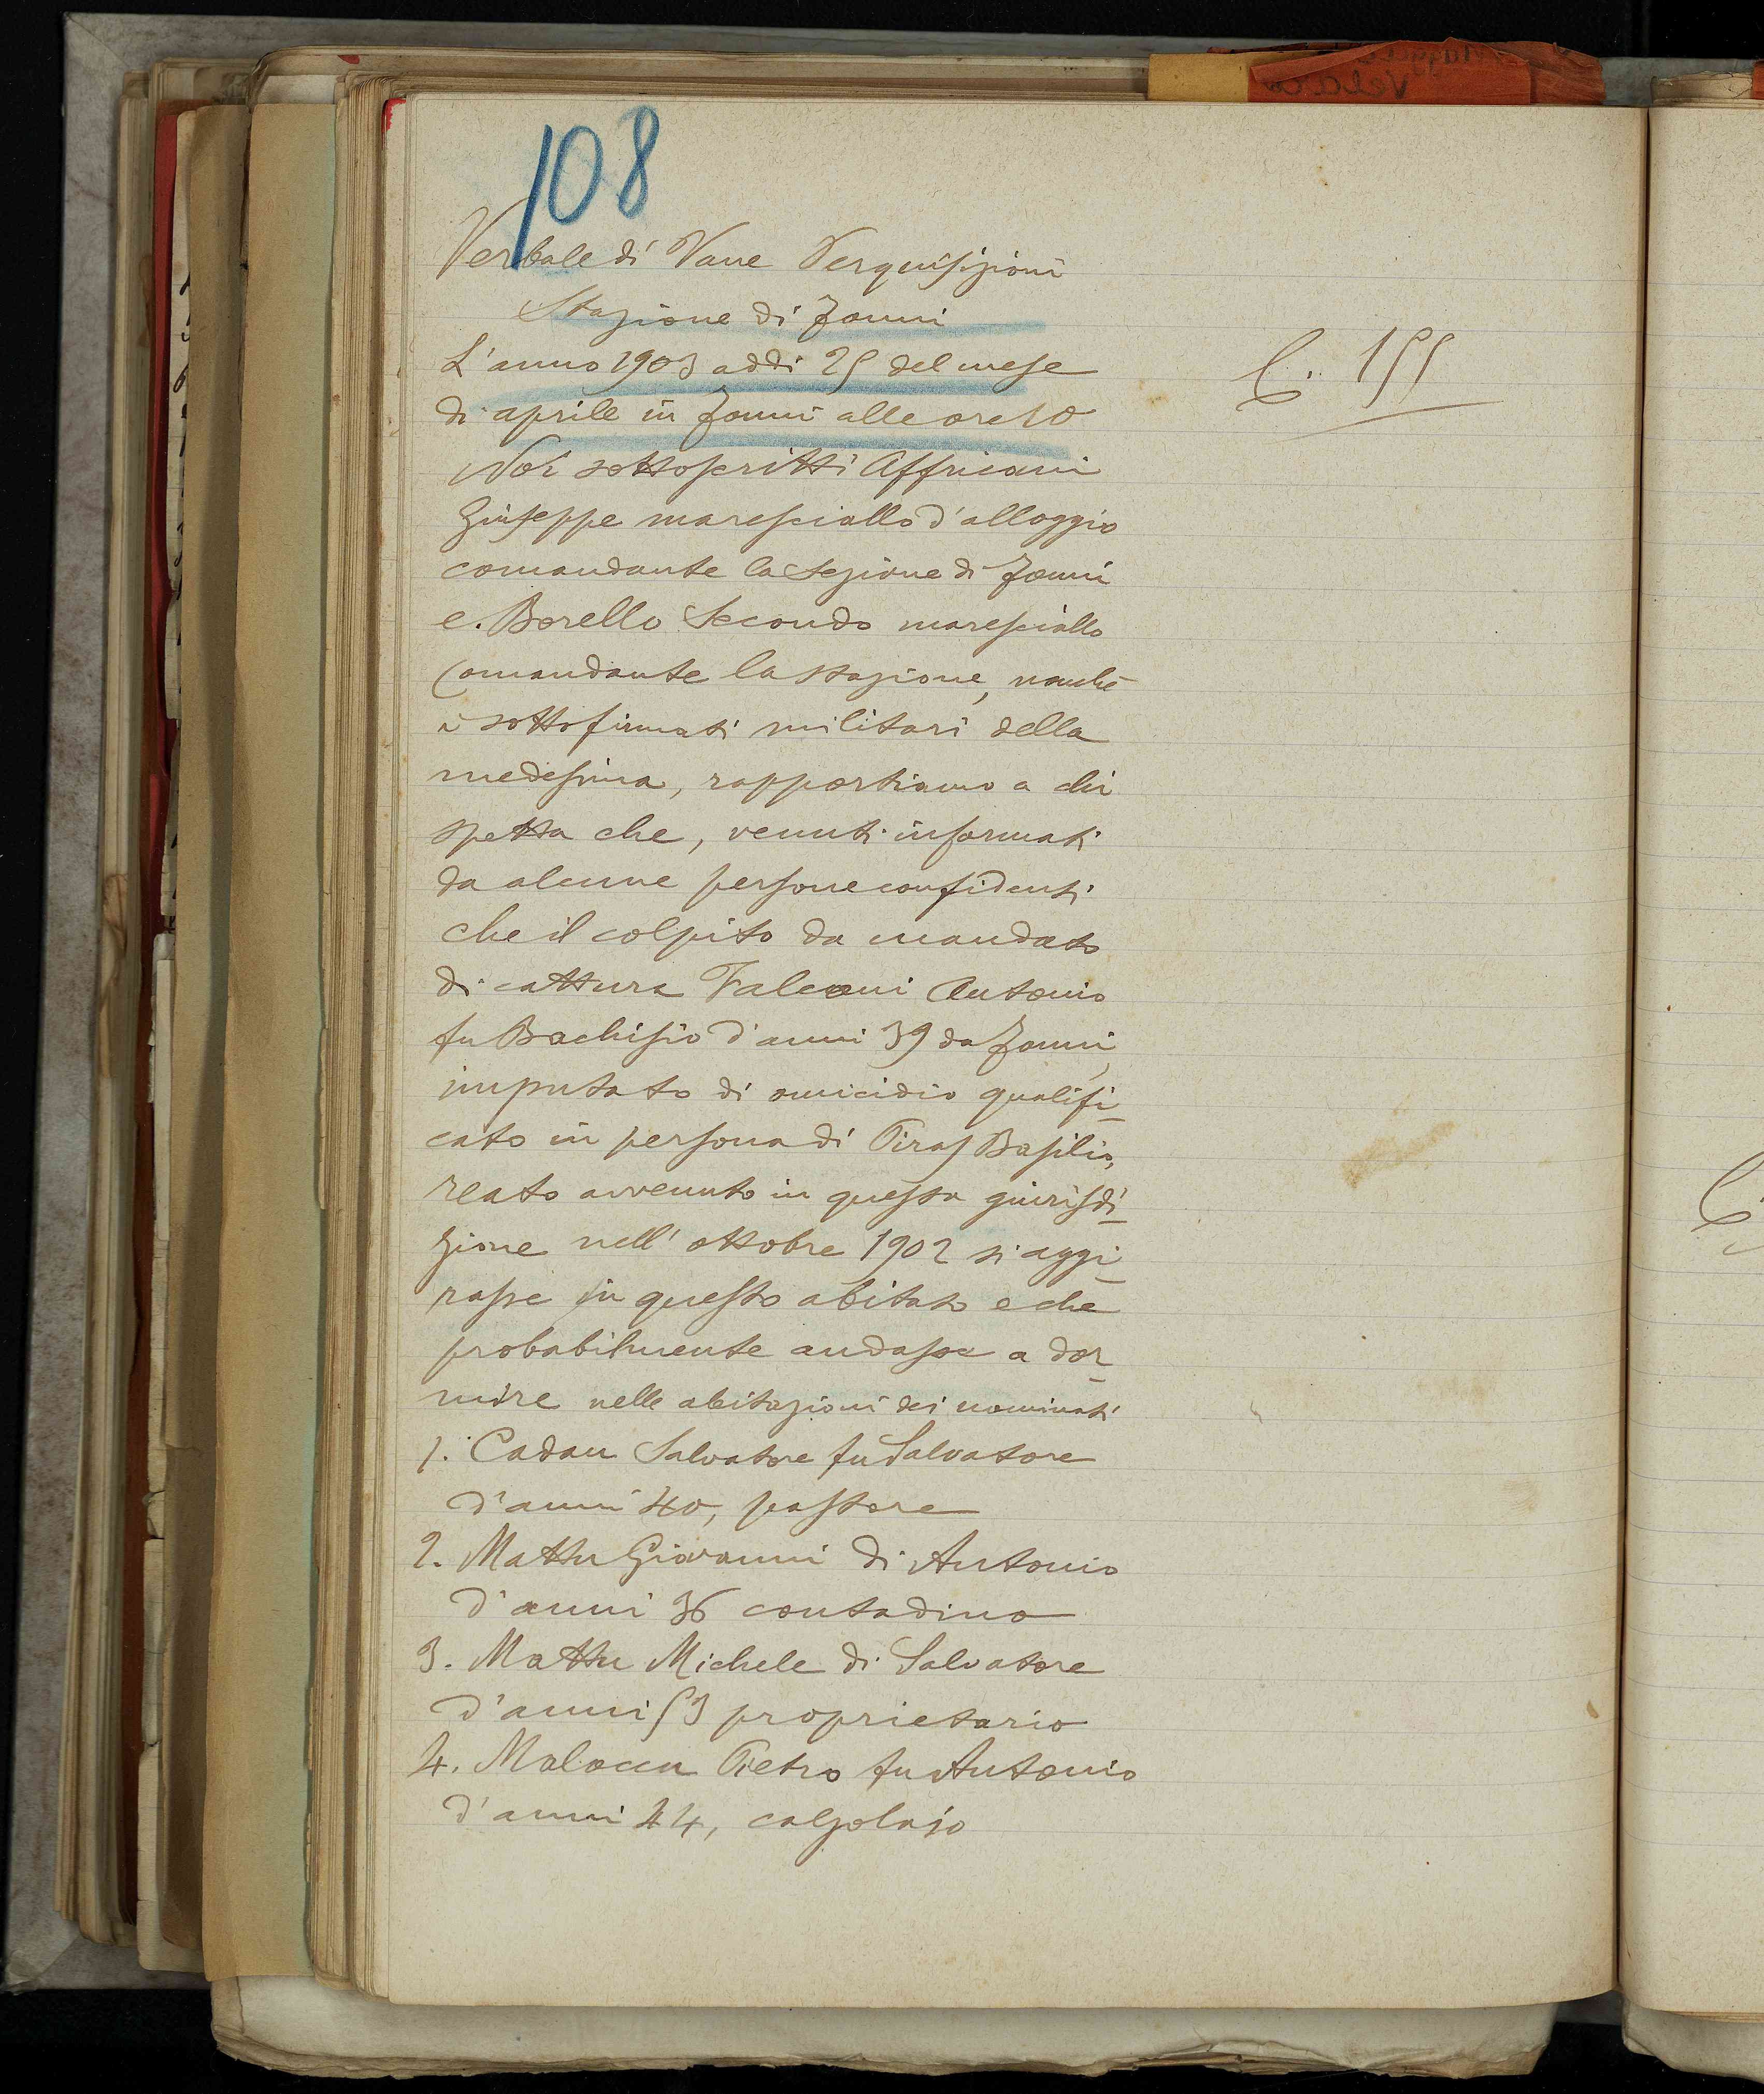 108
Verbale di Vane Perquisizioni
Stazione di Fonni
L'anno 1903 addi 25 del mese
C. 155
di aprile in Fonni alle ore 10
Noi sottoscritti Affricani
Giuseppe maresciallo d'alloggio
comandante la sezione di Fonni
e. Borello Secondo maresciallo
Comandante la stazione, nonché
i sottofirmati militari della
medesima, rapportiamo a chi
spetta che, venuti informati
da alcune persone confidenti
che il colpito da mandato
di cattura Falconi Antonio
fu Bachisio d'anni 39 da Fonni,
imputato di omicidio qualifi-
cato in persona di Piras Basilio,
reato avvenuto in questa giurisdi-
zione nell'ottobre 1902 si aggi-
rasse in questo abitato e che
probabilmente andasse a dor-
mire nelle abitazioni dei nominati
1. Cadau Salvatore fu Salvatore
d'anni 40, pastore
2. Mattu Giovanni di Antonio
d'anni 36 contadino
3. Mattu Michele di Salvatore
d'anni 53 proprietario
4. Maloccu Pietro fu Antonio
d'anni 44, calzolajo